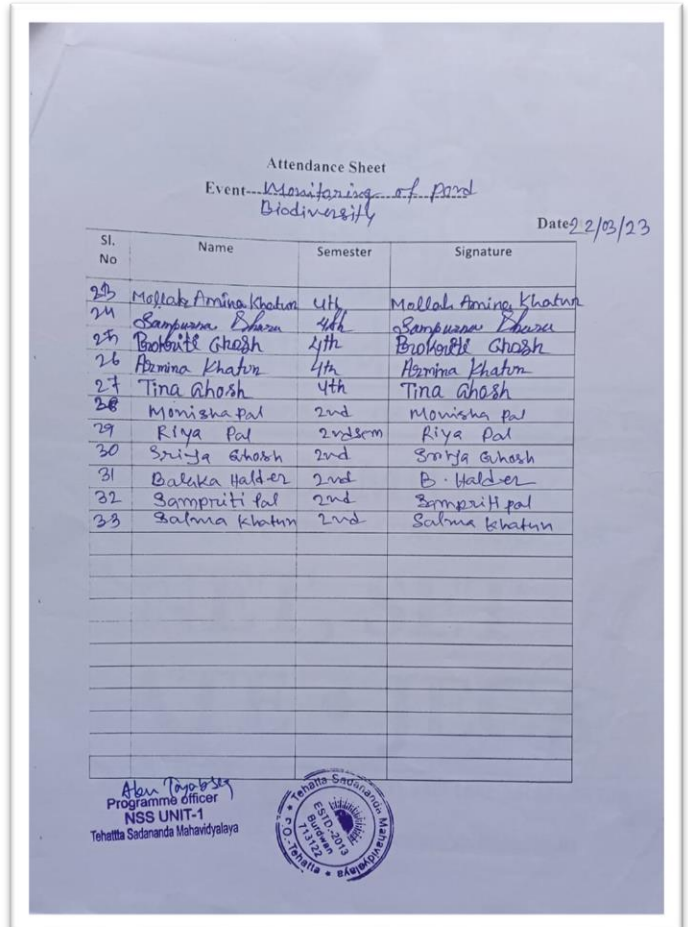 Attendance Sheet
Event---Monitoring of Pond
Biodiversity
Date 22/03/23
Sl. No Name Semester Signature
23 Mollah Amina Khatun 4th Mollah Amina Khatun
24 Sampurna 4th Sampurna
25 Ghosh 4th Ghosh
26 Azmina Khatun 4th Azmina Khatun
27 Tina Ghosh 4th Tina Ghosh
28 Monisha Pal 2nd Monisha Pal
29 Riya Pal 2nd sem Riya Pal
30 Srija Ghosh 2nd Srija Ghosh
31 Balaka Halder 2nd B. Halder
32 Sampriti Pal 2nd Sampriti Pal
33 Salma Khatun 2nd Salma Khatun
Abu
Programme officer
NSS UNIT-1
Tehattta Sadananda Mahavidyalaya
Tehatta Sadananda Mahavidyalaya
P.O.-Tehatta
ESTD.-2013
Burdwan
713122